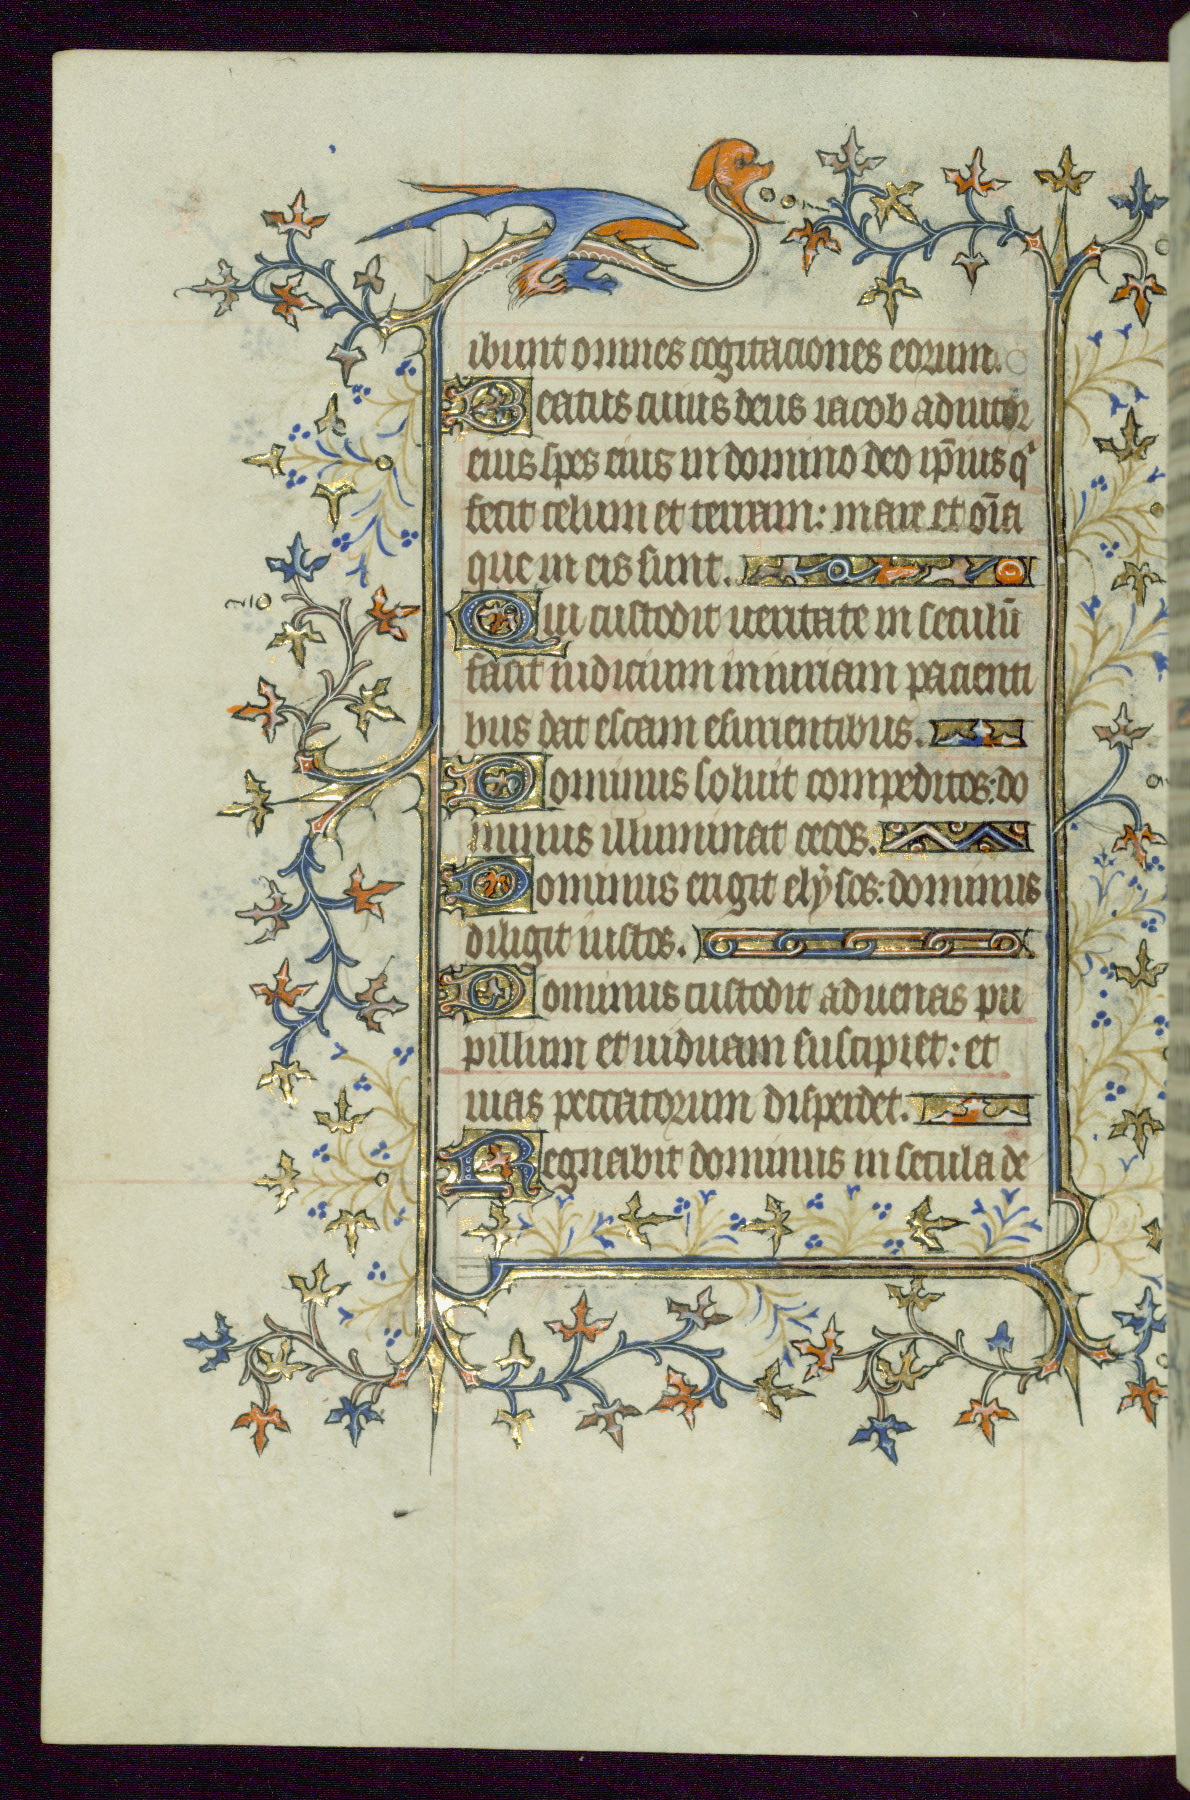 ibunt omnes cogitaciones eorum.
Beatus cuius deus iacob adiutor
eius spes eius in domino deo ip̄ius qⁱ
fecit celum et terram: mare et oīa
que in eis sunt.
Qui custodit ueritate in seculū
facit iudicium iniuriam pacienti
bus dat escam esurientibus.
Dominus soluit compeditos: do
minus illuminat cecos.
Dominus erigit elysos: dominus
diligit iustos.
Dominus custodit aduenas pu
pillum et uiduam suscipiet: et
uias peccatorum disperdet.
Regnabit dominus in secula de